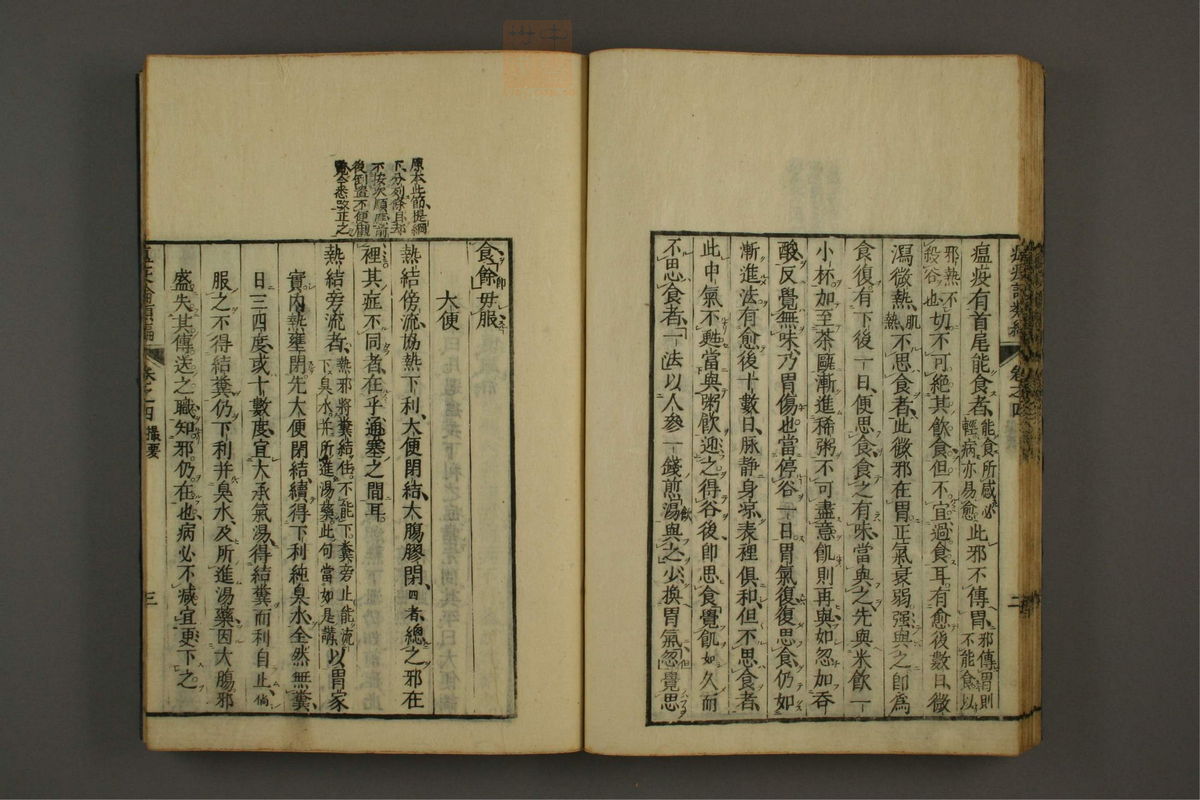 瘟疫論類編 卷之四 二
瘟疫有首尾能食者能食所感必輕病亦易愈此邪不傳胃邪傳胃則不能食以
邪熱不殺谷也切不可絕其飲食但不宜過食耳有愈後數日微
瀉微熱肌熱不思食者此微邪在胃正氣衰弱强與之卽爲
食復有下後一日便思食食之有味當與之先與米飲一
小杯加至茶甌漸進稀粥不可盡意飢則再與如忽加吞
酸反覺無味乃胃傷也當停谷一日胃氣復復思食仍如
漸進法有愈後十數日脉静身凉表裡俱和但不思食者
此中氣不甦當與粥飲迎之得谷後卽思食覺飢如久而
不思食者一法以人參一錢煎湯與之少換胃氣忽覺思
食餘毋服
大便
原本此節提綱
下分列條目却
不按次順
後倒置不便觀
覽今悉改正之
熱結傍流協熱下利大便閉結大腸膠閉四者總之邪在
裡其症不同者在乎通塞之間耳
熱結旁流者熱邪將糞結住不能下糞旁止能流下臭水并所進湯藥此句當如是講以胃家
實內熱壅閉先大便閉結續得下利純臭水全然無糞
日三四度或十數度宜大承氣湯得結糞而利自止倘
服之不得結糞仍下利并臭水及所進湯藥因大腸邪
盛失其傳送之職知邪仍在也病必不減宜更下之
卷之四 撮要 三